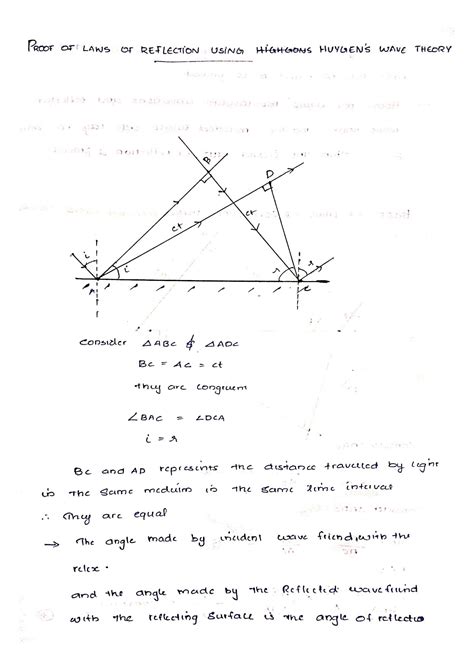 PROOF OF LAWS OF REFLECTION USING HIGHGONS HUYGEN'S WAVE THEORY
B
D
ct
ct
i
i
r
r
A
C
Consider △ABC & △ADC
BC = AC = ct
They are congruem
∠BAC = ∠DCA
i = r
BC and AD represents the distance travelled by light
in the same meduim in the same time interval
∴ They are equal
→ The angle made by incident wave friend, with the
relex.
and the angle made by the Reflected wavefriund
with the reflecting surface is the angle of reflectio